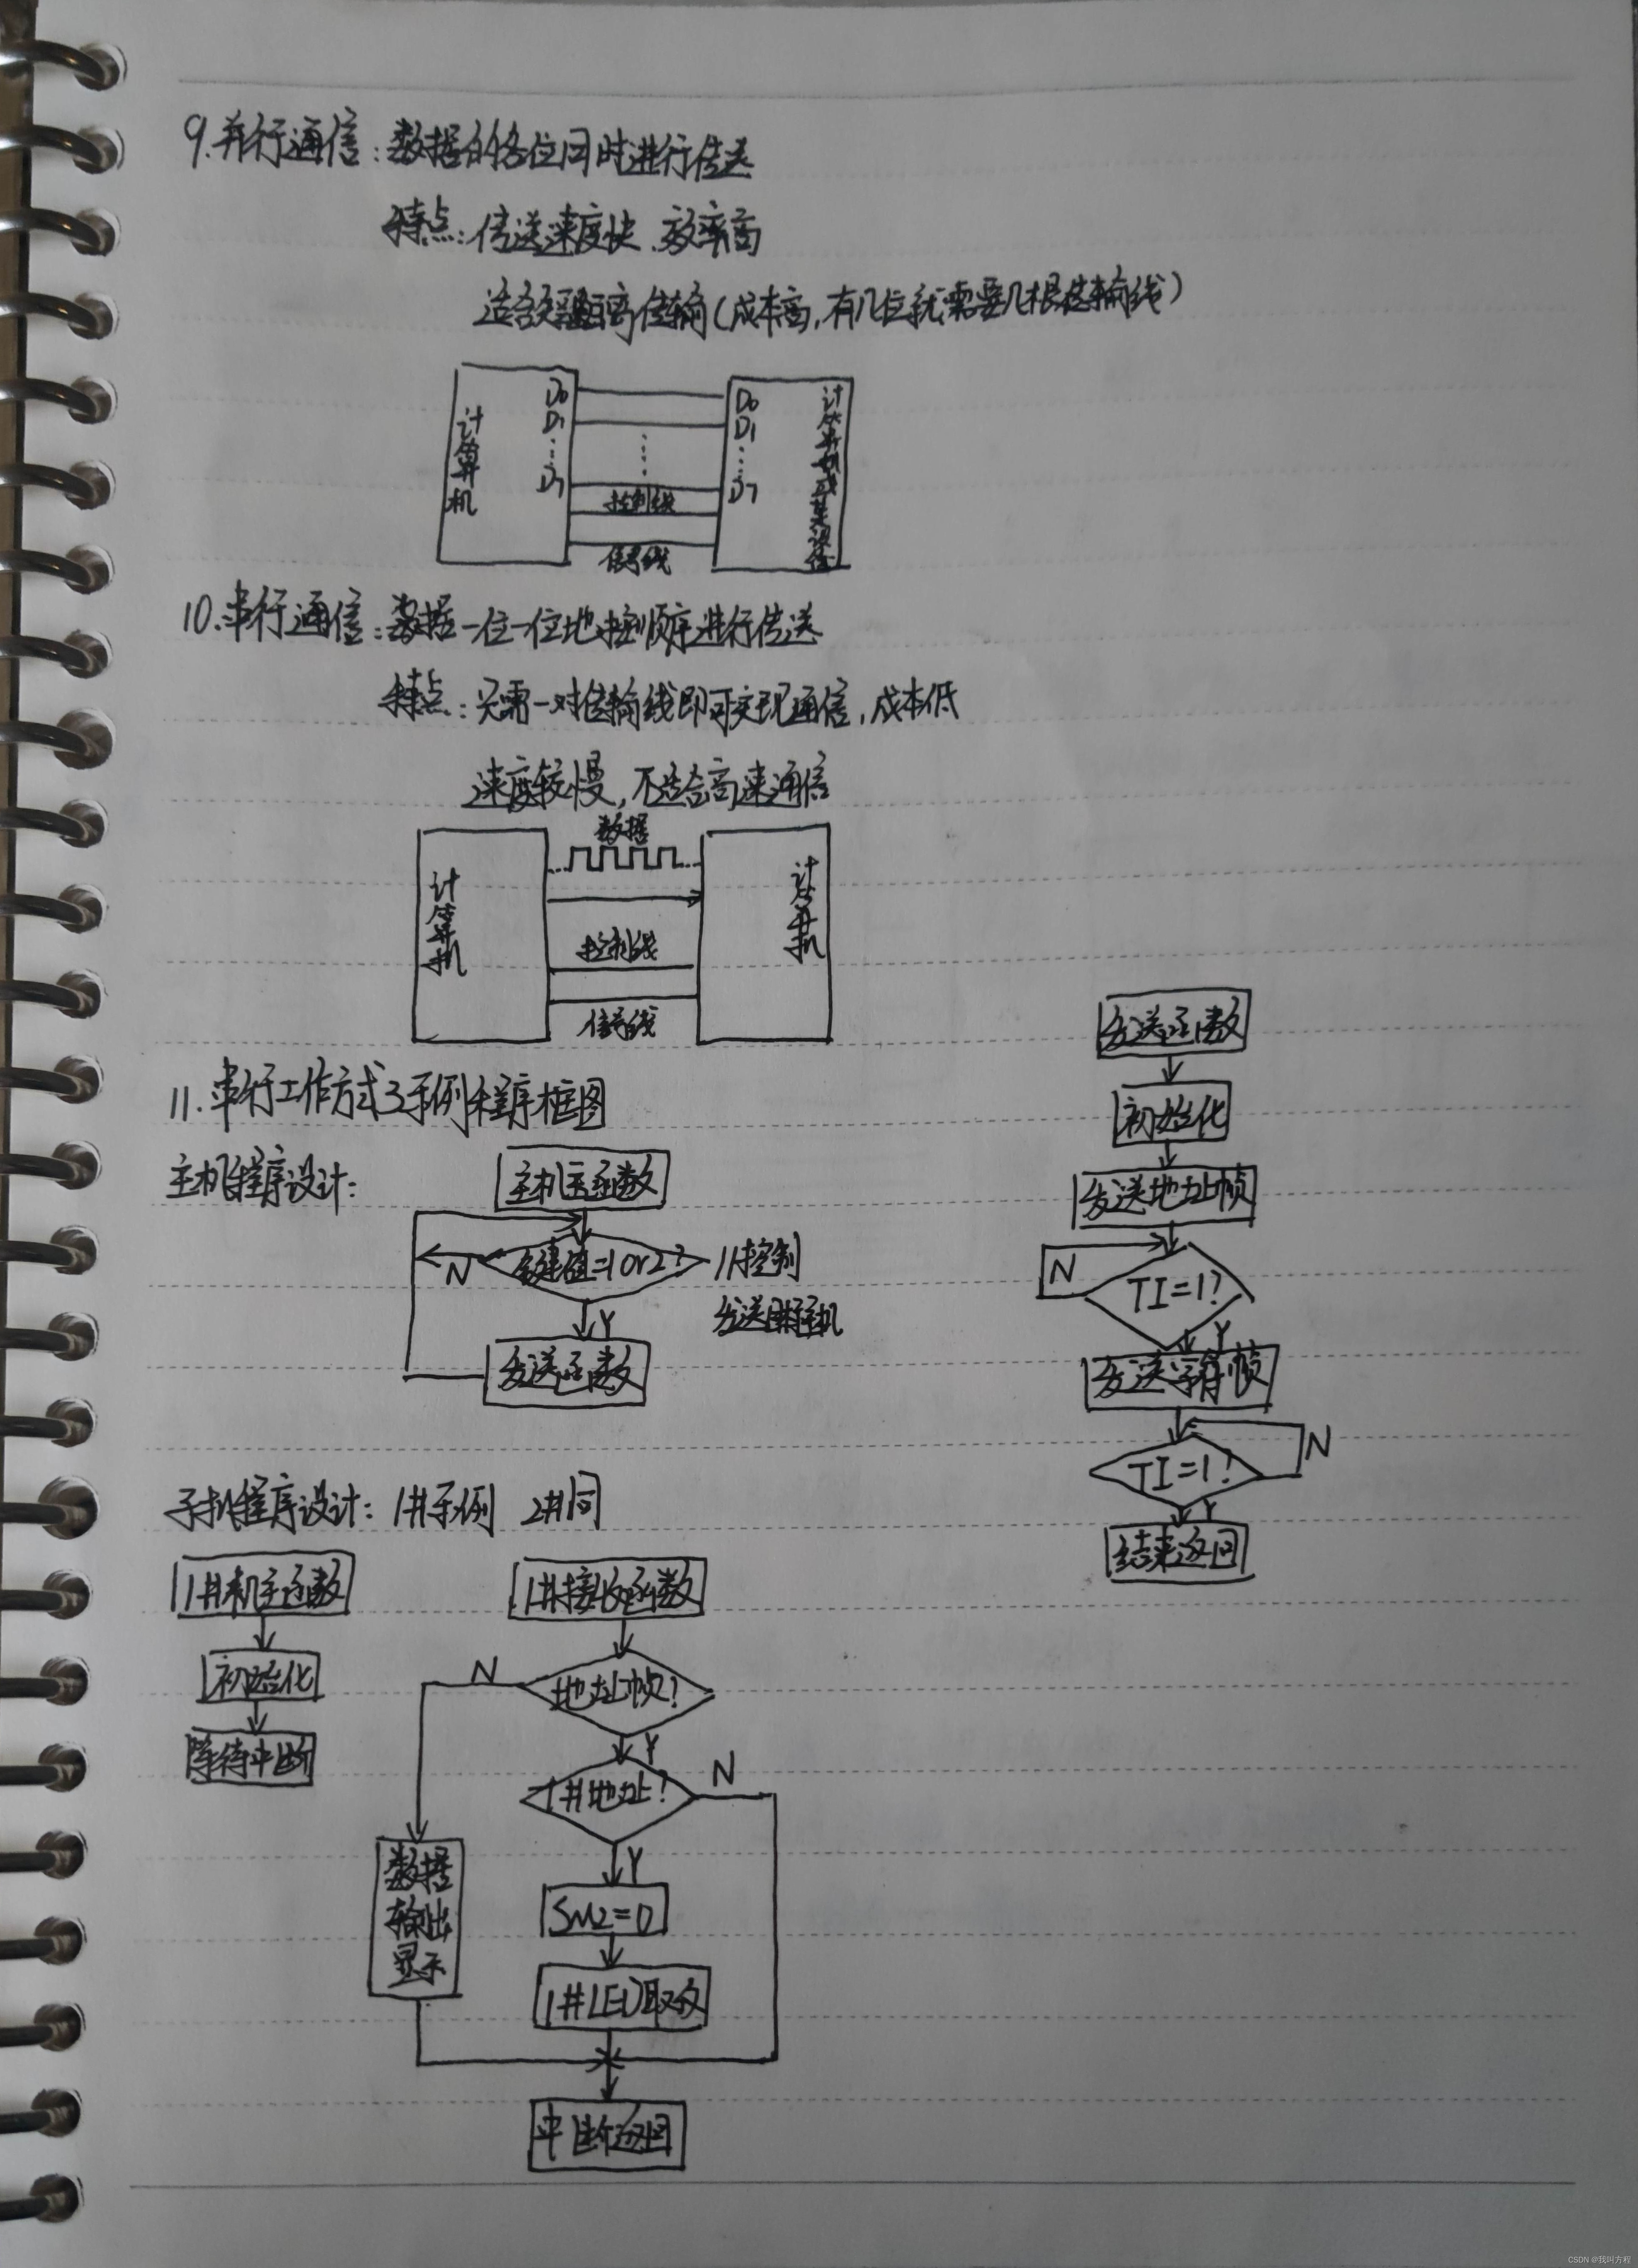 9.并行通信:数据的各位同时进行传送
特点:传送速度快、效率高
适合短距离传输(成本高,有几位就需要几根传输线)
计算机
D0
D1
D7
控制线
信号线
D0
D1
D7
10.串行通信:数据一位一位地按顺序进行传送
特点:只需一对传输线即可实现通信,成本低
速度较慢,不适合高速通信
计算机
数据
控制线
信号线
计算机
11.串行工作方式3示例程序框图
主机程序设计:
主机主函数
键值=1or2?
N
Y
//控制
发送函数
发送函数
初始化
发送地址帧
TI=1?
N
Y
发送字符帧
TI=1?
N
Y
结束返回
子机程序设计:1#示例 2#同
1#机主函数
初始化
等待中断
1#接收函数
地址帧?
N
Y
1#地址?
N
Y
SM2=0
1#LED取数
数据
输出
显示
中断返回
CSDN @我叫方程